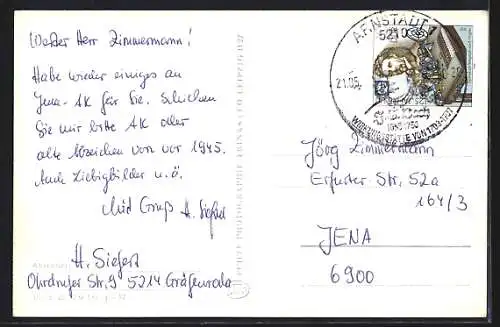 Werter Herr Zimmermann!
Habe wieder einiges an
Jena-AK für Sie. Schicken
Sie mir bitte AK oder
alte Abzeichen von vor 1945.
Auch Liebigbilder u. ä.
Mit Gruß H. Siefert
H. Siefert
Ohrdrufer Str. 9 5214 Gräfenroda
ARNSTADT 1
5210
21.05.
WIRKUNGSSTÄTTE VON 1703-1707
Jörg Zimmermann
Erfurter Str. 52a
164/3
JENA
6900